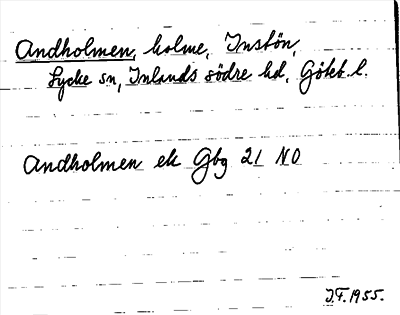 Andholmen, holme, Instön,
Lycke sn, Inlands södre hd, Göteb. l.
Andholmen ek Gbg 21 NO
J.F. 1955.